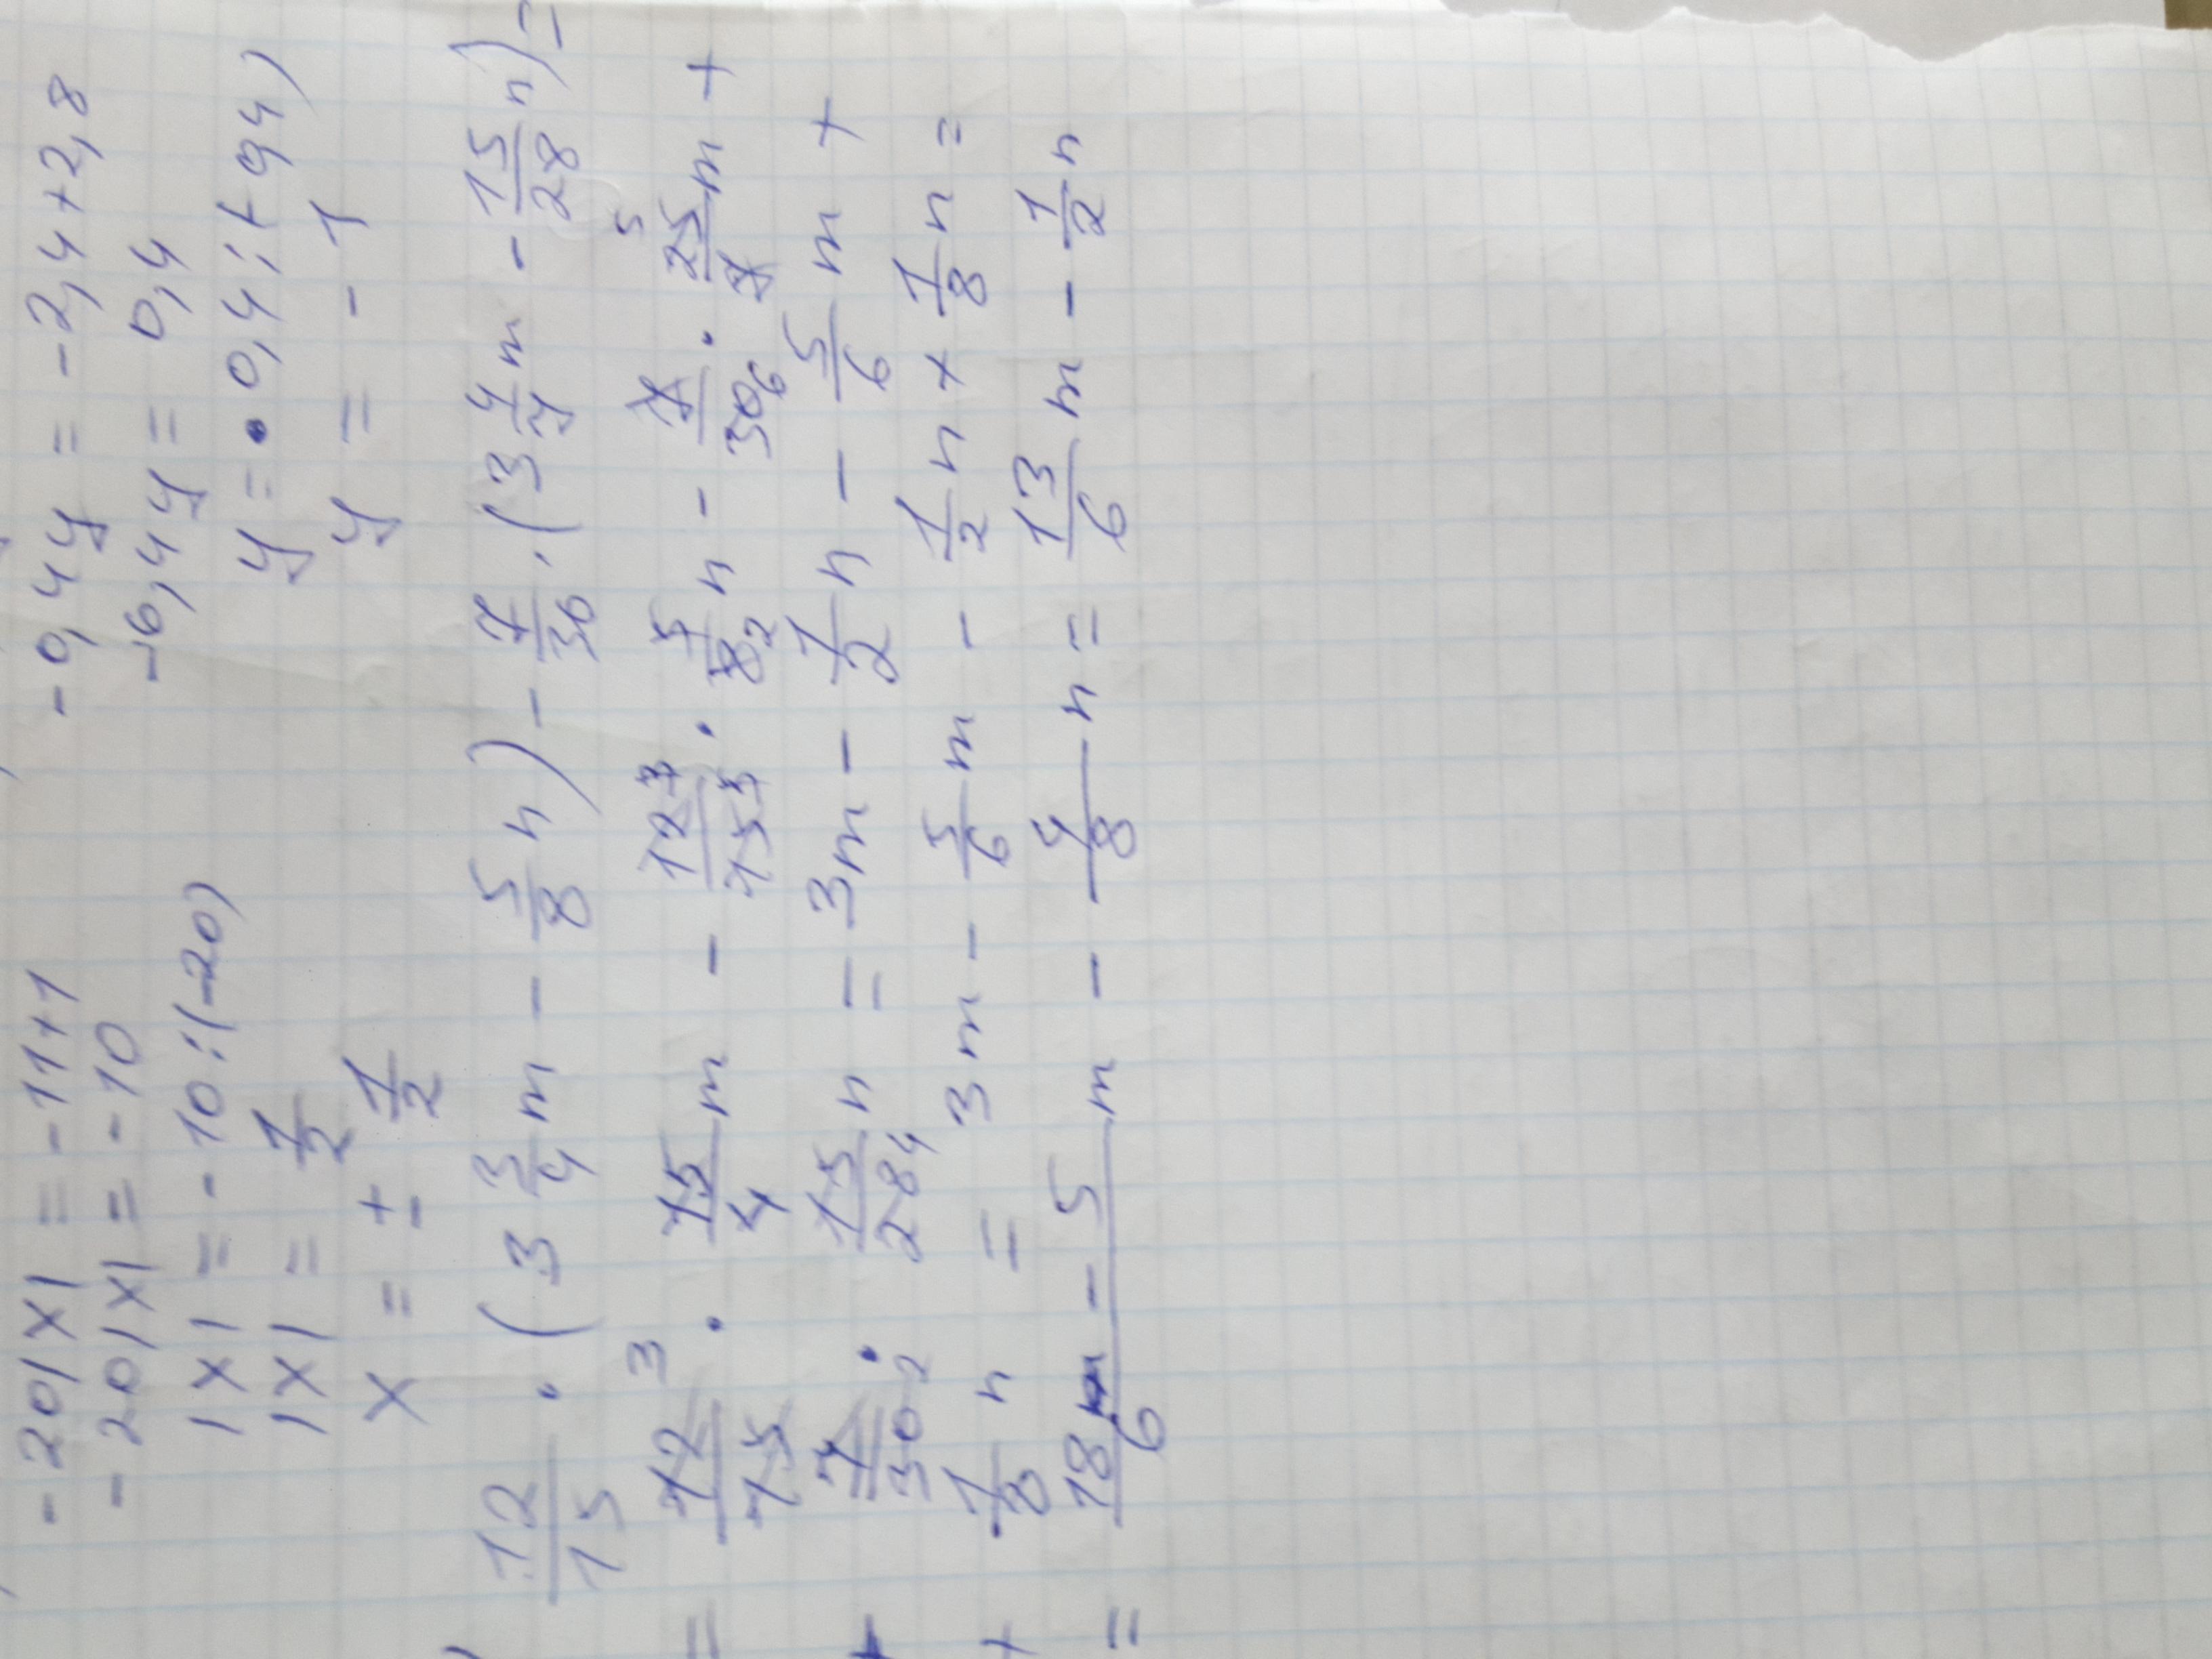 -20|x| = -11+1
-20|x| = -10
|x| = -10:(-20)
|x| = 1/2
x = ± 1/2
-0,4y = -2,4+2,8
-0,4y = 0,4
y = 0,4:(-0,4)
y = -1
12/15 · (3 3/4 m - 5/8 n) - 7/30 · (3 4/7 m - 15/28 n) =
= 12/15 · 15/4 m - 12/15 · 5/8 n - 7/30 · 25/7 m +
+ 7/30 · 15/28 n = 3m - 1/2 n - 5/6 m +
+ 1/8 n = 3m - 5/6 m - 1/2 n + 1/8 n =
= (18-5)/6 m - 4/8 n = 13/6 m - 1/2 n